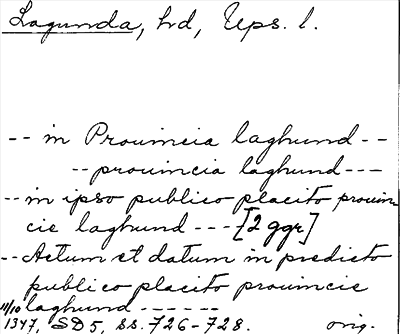 Lagunda, hd, Ups. l.
-- in Prouincia laghund --
-- prouincia laghund ---
-- in ipso publico placito prouin
cie laghund --- [2 ggr]
-- Actum et datum in predicto
publico placito prouincie
11/10 laghund ------
1347, SD 5, ss. 726-728. orig.